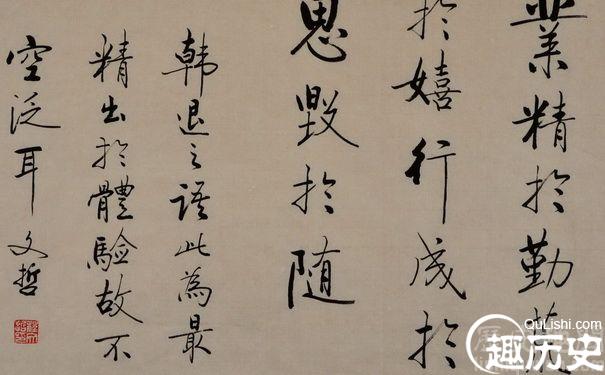 業精於勤荒
於嬉行成於
思毀於随
韓退之語此為最
精出於體驗故不
空泛耳 文哲
QuLishi.com
趣历史